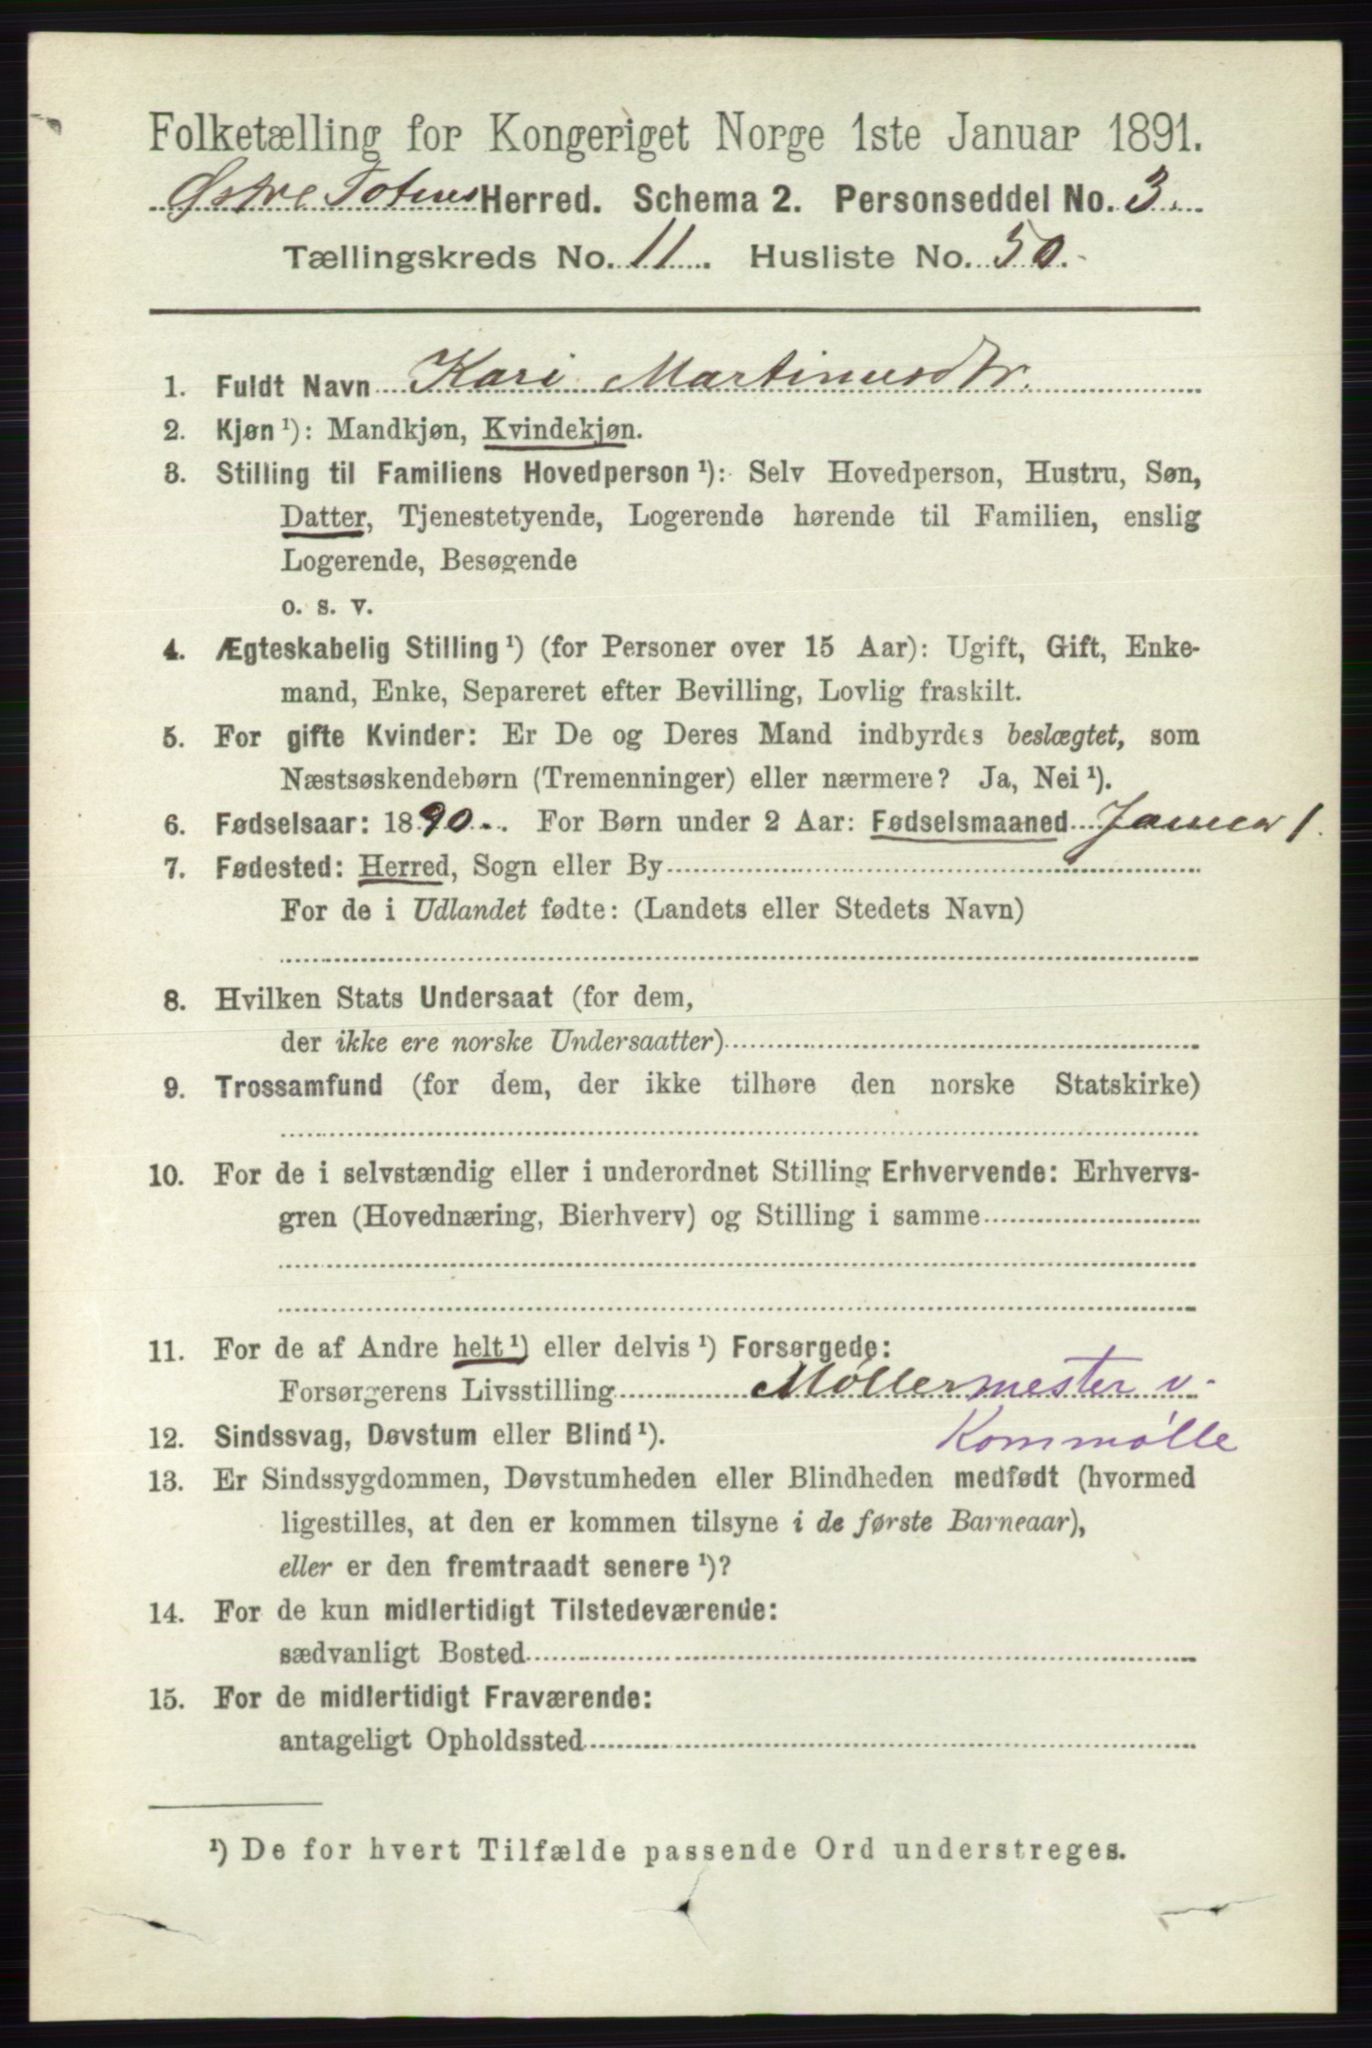 Folketælling for Kongeriget Norge 1ste Januar 1891.
Østre Totens Herred. Schema 2. Personseddel No. 3.
Tællingskreds No. 11. Husliste No. 50.
1. Fuldt Navn Kari Martinusdtr.
2. Kjøn ¹): Mandkjøn, Kvindekjøn.
3. Stilling til Familiens Hovedperson ¹): Selv Hovedperson, Hustru, Søn,
Datter, Tjenestetyende, Logerende hørende til Familien, enslig
Logerende, Besøgende
o. s. v.
4. Ægteskabelig Stilling ¹) (for Personer over 15 Aar): Ugift, Gift, Enke-
mand, Enke, Separeret efter Bevilling, Lovlig fraskilt.
5. For gifte Kvinder: Er De og Deres Mand indbyrdes beslægtet, som
Næstsøskendebørn (Tremenninger) eller nærmere? Ja, Nei ¹).
6. Fødselsaar: 1890. For Børn under 2 Aar: Fødselsmaaned Januar 1.
7. Fødested: Herred, Sogn eller By
For de i Udlandet fødte: (Landets eller Stedets Navn)
8. Hvilken Stats Undersaat (for dem,
der ikke ere norske Undersaatter)
9. Trossamfund (for dem, der ikke tilhøre den norske Statskirke)
10. For de i selvstændig eller i underordnet Stilling Erhvervende: Erhvervs-
gren (Hovednæring, Bierhverv) og Stilling i samme
11. For de af Andre helt ¹) eller delvis ¹) Forsørgede:
Forsørgerens Livsstilling Møllermester v.
Kornmølle
12. Sindssvag, Døvstum eller Blind ¹).
13. Er Sindssygdommen, Døvstumheden eller Blindheden medfødt (hvormed
ligestilles, at den er kommen tilsyne i de første Barneaar),
eller er den fremtraadt senere ¹)?
14. For de kun midlertidigt Tilstedeværende:
sædvanligt Bosted
15. For de midlertidigt Fraværende:
antageligt Opholdssted
¹) De for hvert Tilfælde passende Ord understreges.